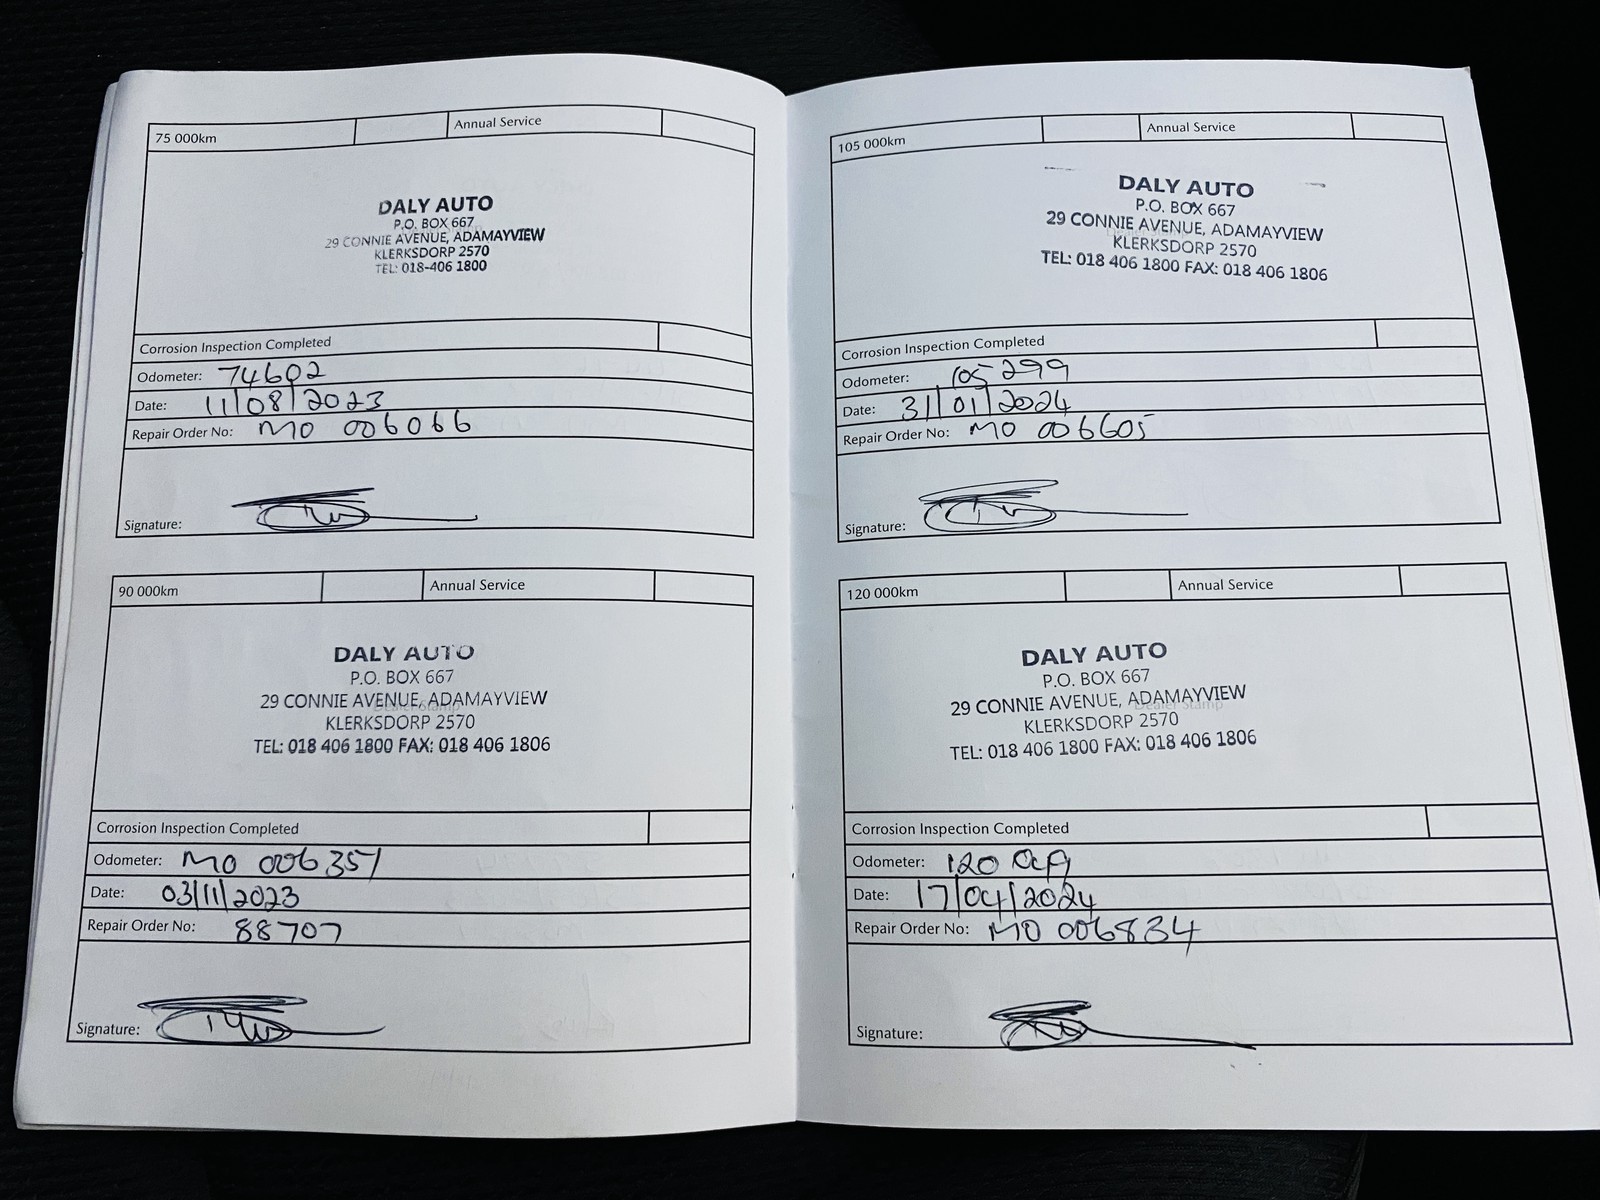 75 000km
Annual Service
DALY AUTO
P.O. BOX 667
29 CONNIE AVENUE, ADAMAYVIEW
KLERKSDORP 2570
TEL: 018-406 1800
Corrosion Inspection Completed
Odometer: 74602
Date: 11/08/2023
Repair Order No: MO 006066
Signature:
90 000km
Annual Service
DALY AUTO
P.O. BOX 667
29 CONNIE AVENUE, ADAMAYVIEW
Dealer Stamp
KLERKSDORP 2570
TEL: 018 406 1800 FAX: 018 406 1806
Corrosion Inspection Completed
Odometer: MO 006351
Date: 03/11/2023
Repair Order No: 88707
Signature:
105 000km
Annual Service
DALY AUTO
P.O. BOX 667
29 CONNIE AVENUE, ADAMAYVIEW
KLERKSDORP 2570
TEL: 018 406 1800 FAX: 018 406 1806
Corrosion Inspection Completed
Odometer: 105 299
Date: 31/01/2024
Repair Order No: MO 006605
Signature:
120 000km
Annual Service
DALY AUTO
P.O. BOX 667
29 CONNIE AVENUE, ADAMAYVIEW
Dealer Stamp
KLERKSDORP 2570
TEL: 018 406 1800 FAX: 018 406 1806
Corrosion Inspection Completed
Odometer: 120
Date: 17/04/2024
Repair Order No: MO 006834
Signature: